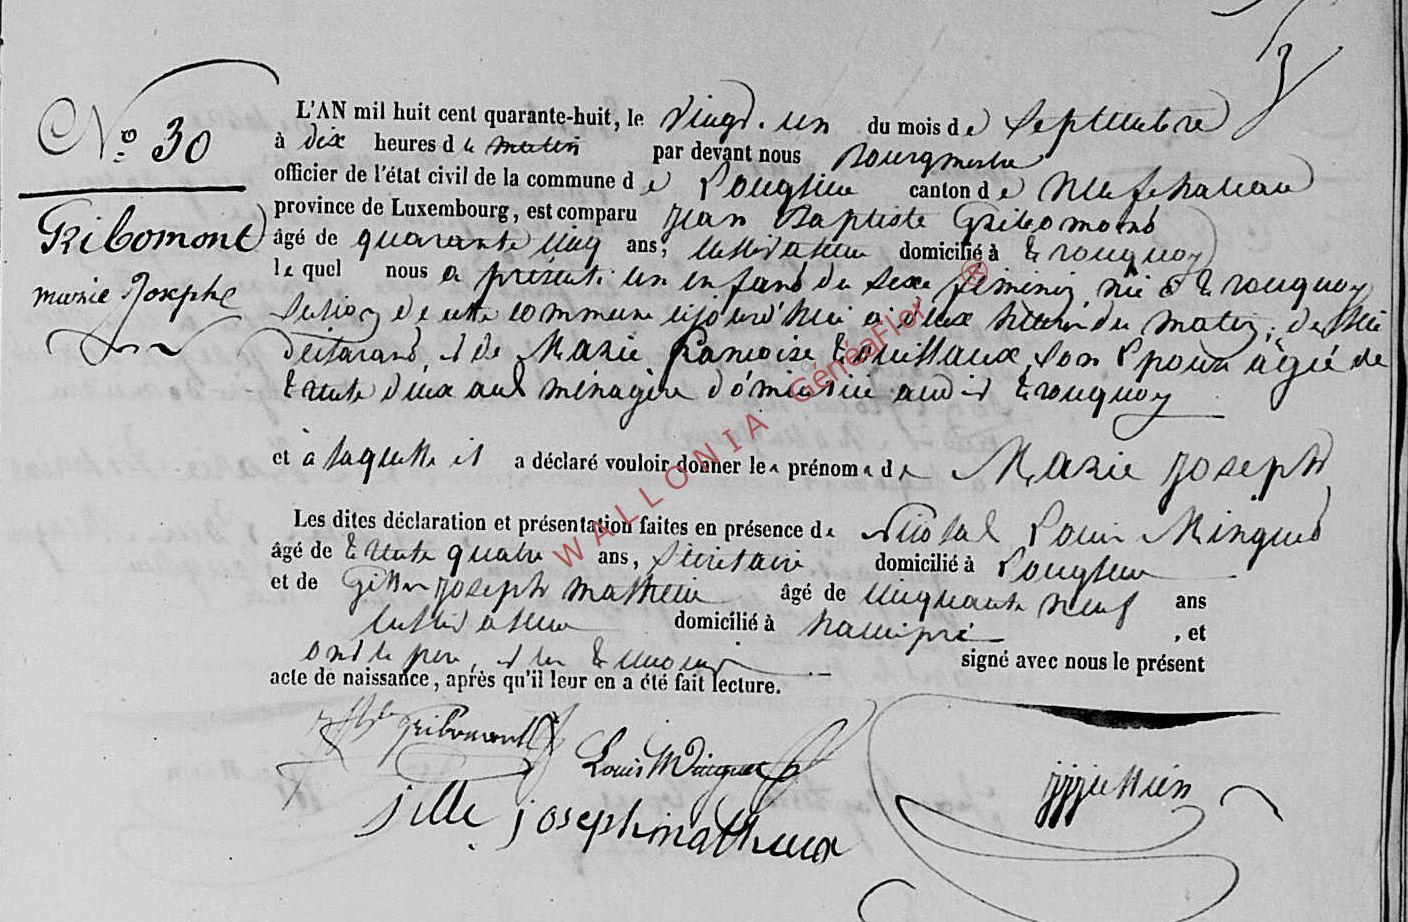 N° 30
Gribomont
marie Josephe
L'AN mil huit cent quarante-huit, le vingt-un du mois de Septembre
à dix heures du matin par devant nous Bourgmestre
officier de l'état civil de la commune de Longlier canton de Neufchateau
province de Luxembourg, est comparu Jean Baptiste Gribomont
âgé de quarante cinq ans, cultivateur domicilié à Tronquoy
lequel nous a présenté un enfant du sexe féminin, née à Tronquoy
Section de cette commune aujourd'hui à deux heures du matin, de lui
déclarant et de Marie françoise son Epouse agée de
trente deux ans ménagère domiciliée audit Tronquoy
et à laquelle il a déclaré vouloir donner les prénoms de Marie Joseph
Les dites déclaration et présentation faites en présence de Nicolas Louis Minguet
âgé de trente quatre ans, Secrétaire domicilié à Longlier
et de Gilles Joseph Mathieu âgé de cinquante neuf ans
cultivateur domicilié à hamipré, et
ont le père, et les témoins signé avec nous le présent
acte de naissance, après qu'il leur en a été fait lecture.
Gribomont
Louis Minguet
jille joseph mathieux
WALLONIA GénéaFlor ®